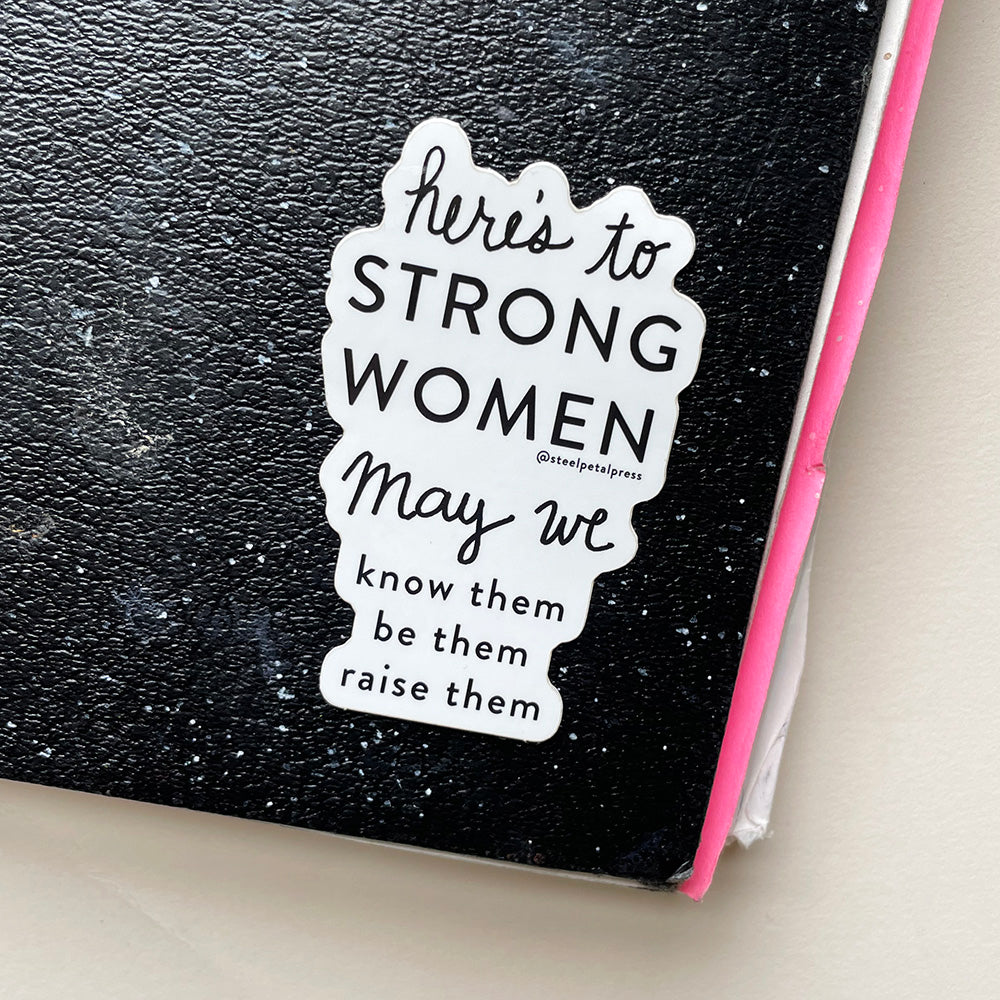 here's to
STRONG
WOMEN
@steelpetalpress
May we
know them
be them
raise them